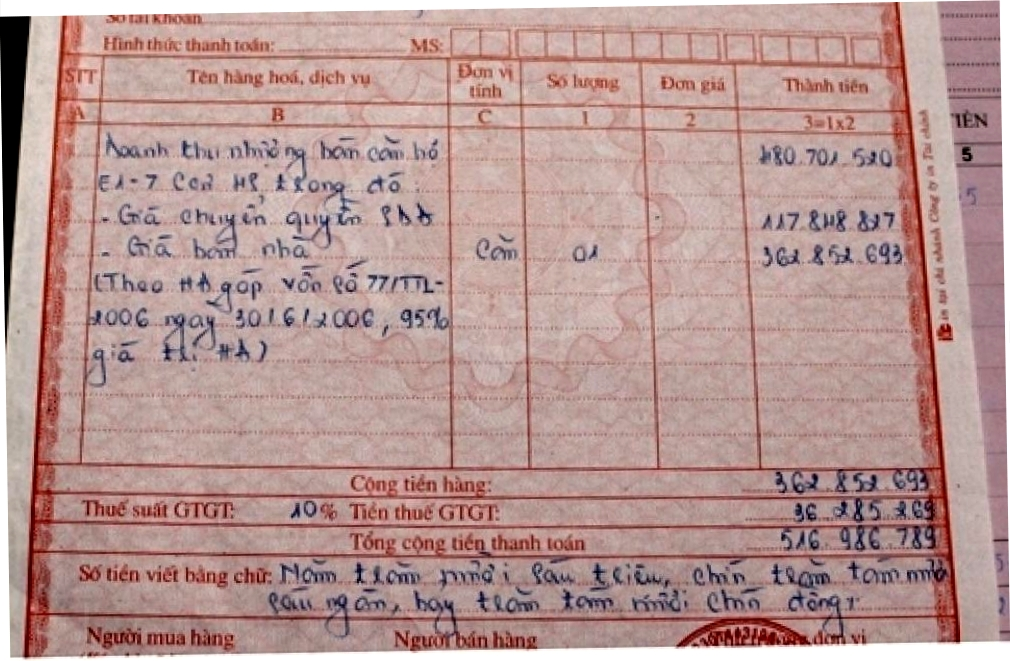 Số tài khoản
Hình thức thanh toán: MS:
STT Tên hàng hoá, dịch vụ Đơn vị tính Số lượng Đơn giá Thành tiền
A B C 1 2 3=1x2
Doanh thu nhượng bán căn hộ 480.701.510
E1-7 CCN HS, trong đó:
- Giá chuyển quyền SDĐ 117.848.817
- Giá bán nhà Căn 01 362.852.693
(Theo HĐ góp vốn số 77/TTL-
2006 ngày 30/6/2006, 95%
giá trị HĐ)
Cộng tiền hàng: 362.852.693
Thuế suất GTGT: 10% Tiền thuế GTGT: 36.285.269
Tổng cộng tiền thanh toán 516.986.789
Số tiền viết bằng chữ: Năm trăm mười sáu triệu, chín trăm tám mươi
sáu ngàn, bảy trăm tám mươi chín đồng
Người mua hàng Người bán hàng đơn vị
In tại chi nhánh Công ty in Tài chính
IỀN
5